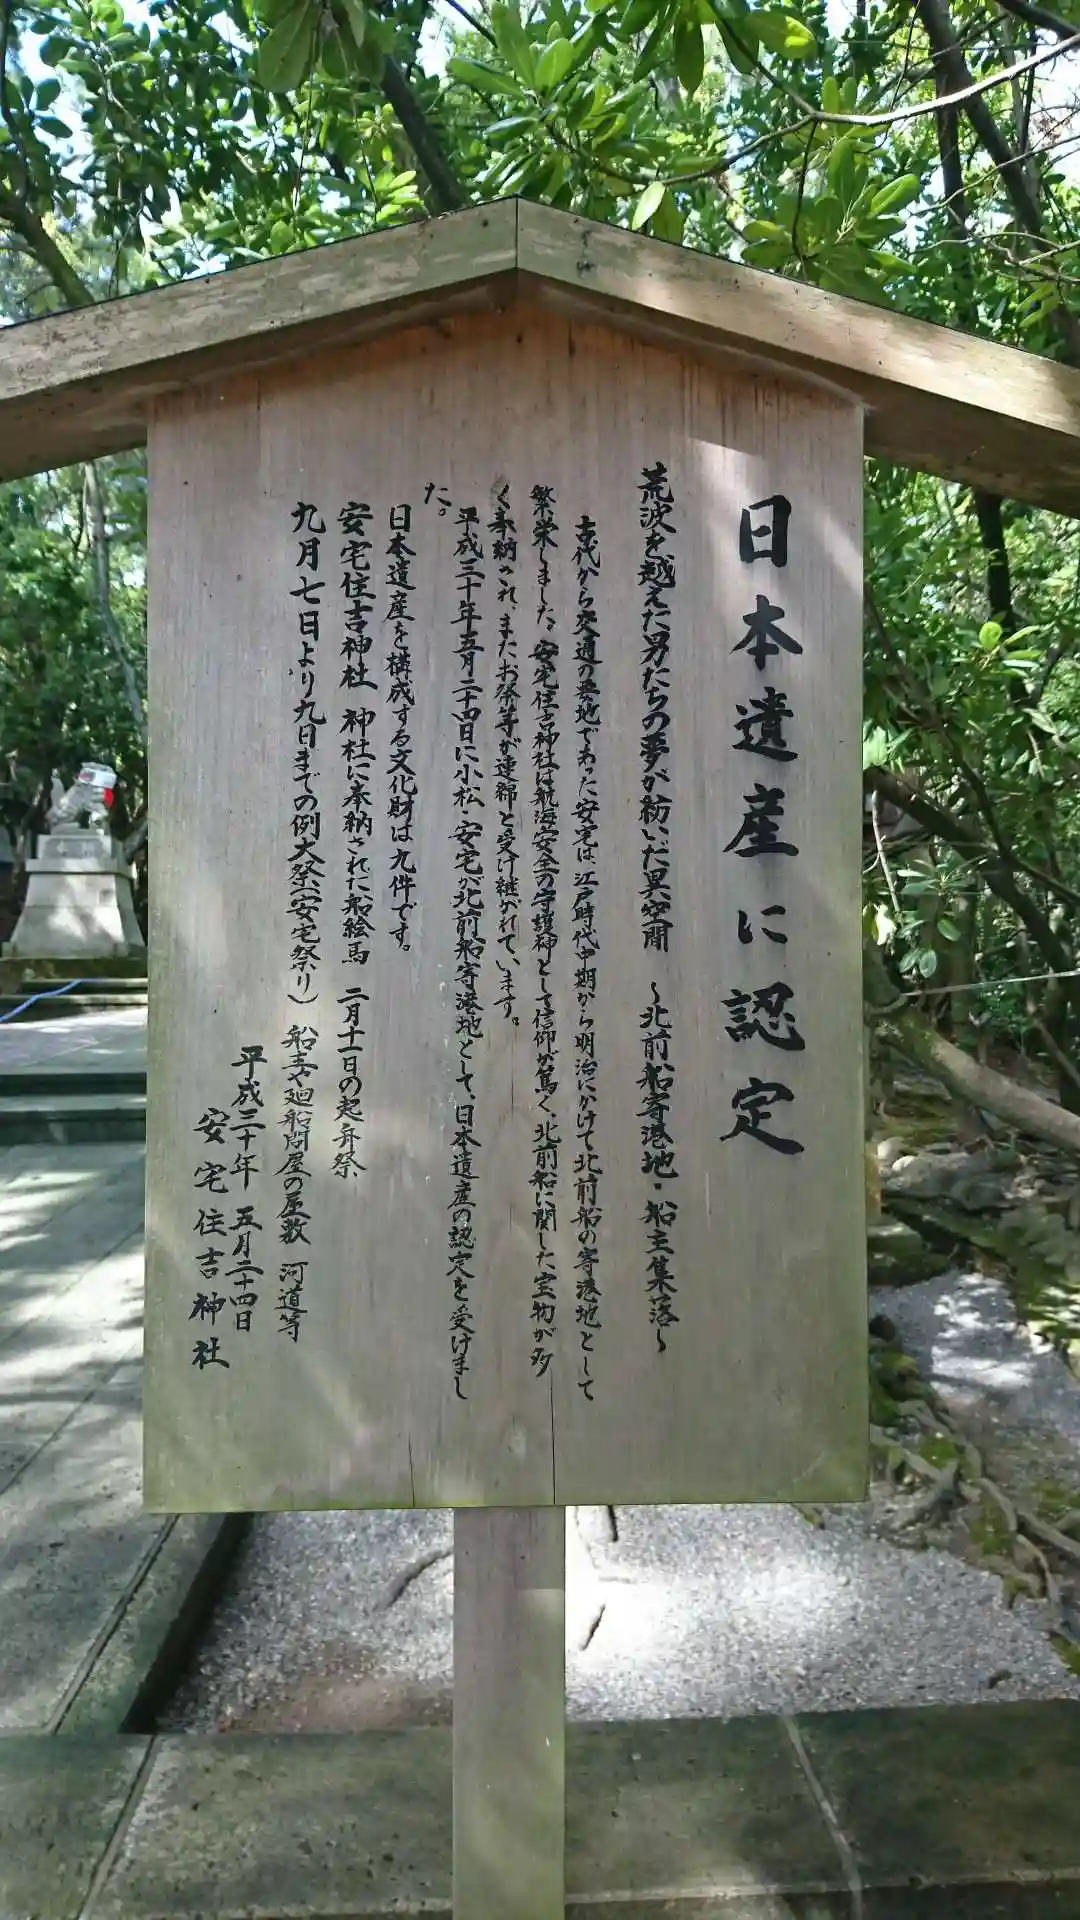 日本遺産に認定
荒波を越えた男たちの夢が紡いだ異空間　～北前船寄港地・船主集落～
古代から交通の要地であった安宅は、江戸時代中期から明治にかけて北前船の寄港地として
繁栄しました。安宅住吉神社は航海安全の守護神として信仰が篤く、北前船に関した宝物が多
く奉納され、またお祭等が連綿と受け継がれています。
平成三十年五月二十四日に小松・安宅が北前船寄港地として、日本遺産の認定を受けまし
た。
日本遺産を構成する文化財は九件です。
安宅住吉神社　神社に奉納された船絵馬　二月十一日の起舟祭
九月七日より九日までの例大祭（安宅祭り）　船主や廻船問屋の屋敷　河道等
平成三十年　五月二十四日
安宅住吉神社